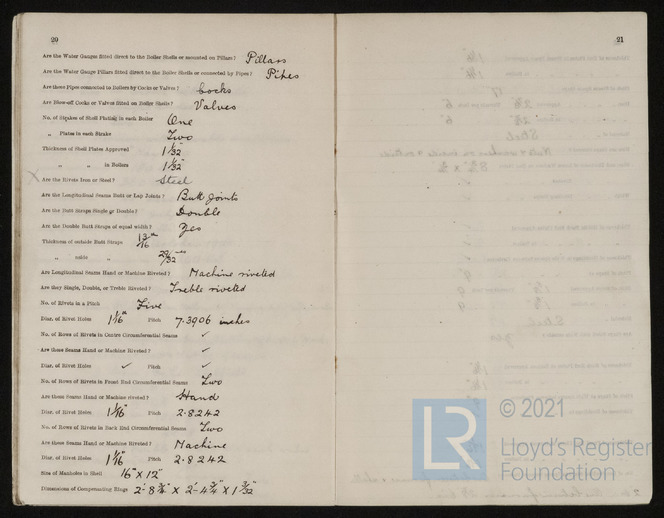 20
Are the Water Gauges fitted direct to the Boiler Shells or mounted on Pillars? Pillars
Are the Water Gauge Pillars fitted direct to the Boiler Shells or connected by Pipes? Pipes
Are these Pipes connected to Boilers by Cocks or Valves? Cocks
Are Blow-off Cocks or Valves fitted on Boiler Shells? Valves
No. of Strakes of Shell Plating in each Boiler One
„ Plates in each Strake Two
Thickness of Shell Plates Approved 1 1/32"
„ „ in Boilers 1 1/32"
Are the Rivets Iron or Steel? Steel
Are the Longitudinal Seams Butt or Lap Joints? Butt Joints
Are the Butt Straps Single or Double? Double
Are the Double Butt Straps of equal width? Yes
Thickness of outside Butt Straps 13/16"
„ inside „ 29/32"
Are Longitudinal Seams Hand or Machine Riveted? Machine riveted
Are they Single, Double, or Treble Riveted? Treble riveted
No. of Rivets in a Pitch Five
Diar. of Rivet Holes 1 1/16" Pitch 7.3906 inches
No. of Rows of Rivets in Centre Circumferential Seams ✓
Are these Seams Hand or Machine Riveted? ✓
Diar. of Rivet Holes ✓ Pitch ✓
No. of Rows of Rivets in Front End Circumferential Seams Two
Are these Seams Hand or Machine riveted? Hand
Diar. of Rivet Holes 1 1/16" Pitch 2.8242
No. of Rows of Rivets in Back End Circumferential Seams Two
Are these Seams Hand or Machine Riveted? Machine
Diar. of Rivet Holes 1 1/16" Pitch 2.8242
Size of Manholes in Shell 16" x 12"
Dimensions of Compensating Rings 2'-8 3/4" x 2'-4 3/4" x 1 3/32"
21
LR
© 2021
Lloyd's Register
Foundation